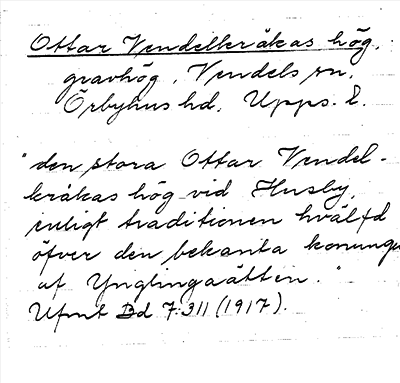 Ottar Vendelkråkas hög,
gravhög, Vendels sn,
Örbyhus hd, Upps. l.
"den stora Ottar Vendel-
kråkas hög vid Husby,
enligt traditionen hvälfd
öfver den bekanta konunge
af Ynglingaätten."
Ufmt Bd 7:311 (1917).